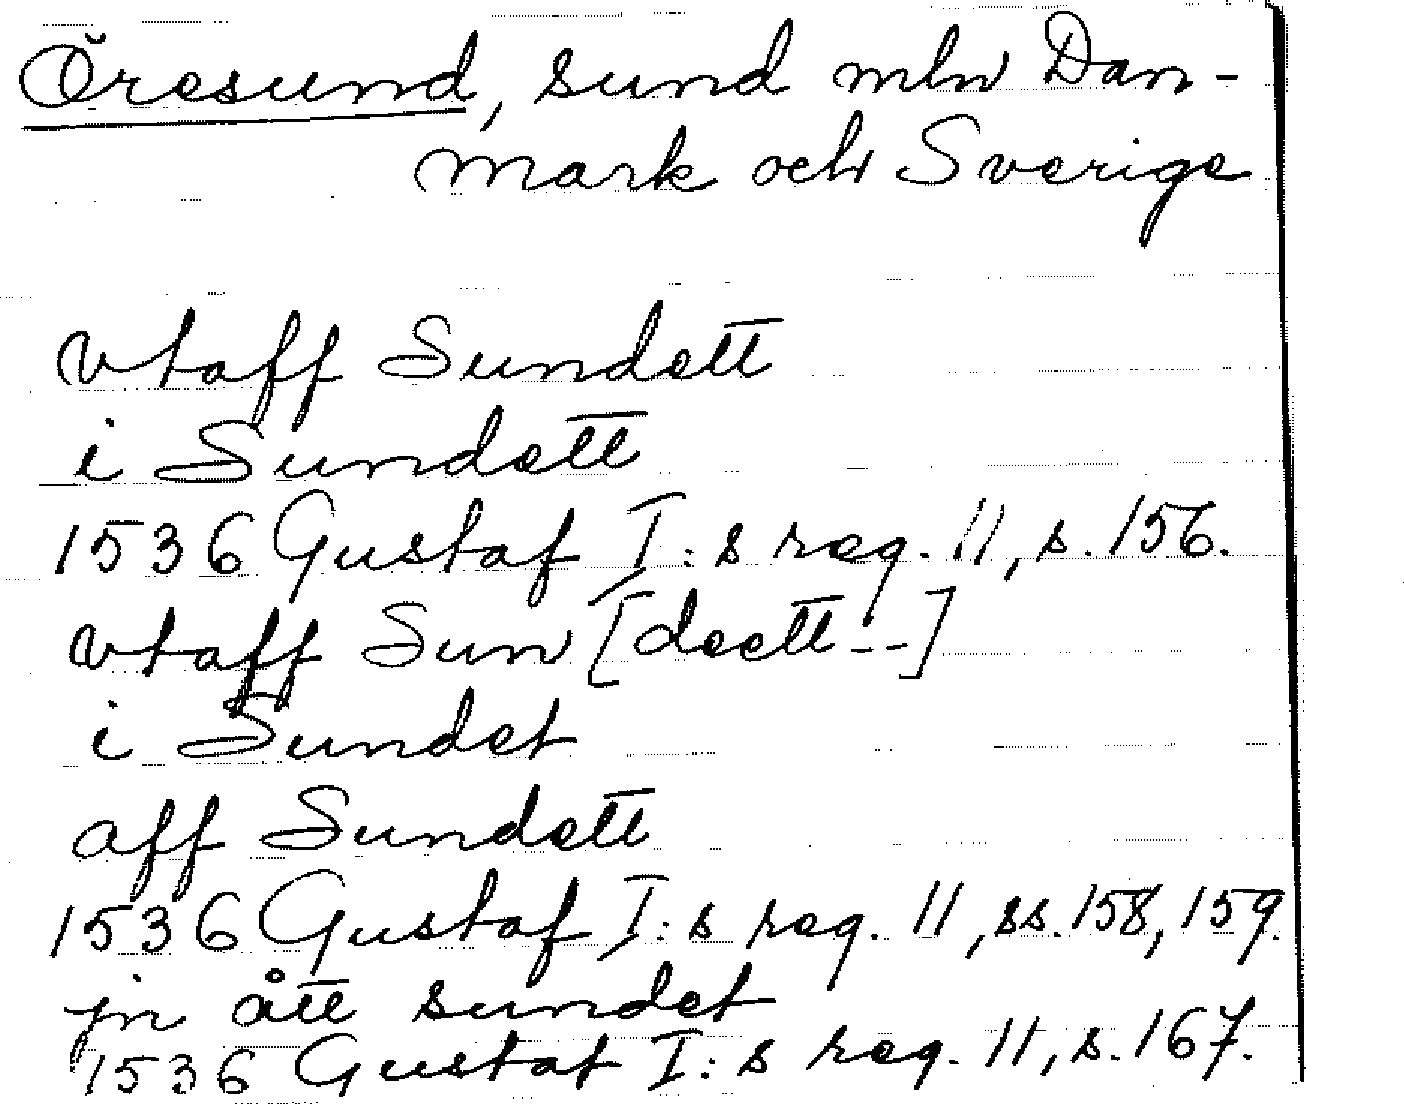 Öresund, sund mln Dan-
mark och Sverige
vtaff Sundett
i Sundett
1536 Gustaf I:s reg. 11, s. 156.
vtaff Sun[dett--]
i Sundet
aff Sundett
1536 Gustaf I:s reg. 11, ss. 158, 159.
jn ått sundet
1536 Gustaf I:s reg. 11, s. 167.